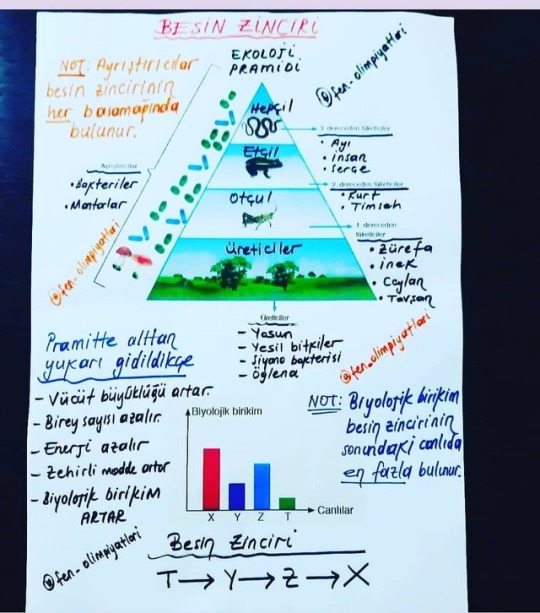 BESİN ZİNCİRİ
EKOLOJİ
PRAMİDİ
@fen_olimpiyatlari
NOT: Ayrıştırıcılar
besin zincirinin
her basamağında
bulunur.
Ayrıştırıcılar
• Bakteriler
• Mantarlar
@fen_olimpiyatlari
Hepçil
Etçil
Otçul
Üreticiler
3. dereceden tüketiciler
• Ayı
• insan
• serçe
2. dereceden tüketiciler
• Kurt
• Timsah
1. dereceden
tüketiciler
• Zürefa
• inek
• Ceylan
• Tavşan
Üreticiler
- Yosun
- Yeşil bitkiler
- Siyano bakterisi
- Öglena
@fen_olimpiyatlari
Pramitte alttan
yukarı gidildikçe
- Vücüt büyüklüğü artar.
- Birey sayısı azalır.
- Enerji azalır
- Zehirli madde artar
- Biyolojik birikim
ARTAR
@fen_olimpiyatlari
Biyolojik birikim
X Y Z T
Canlılar
NOT: Biyolojik birikim
besin zincirinin
sonundaki canlıda
en fazla bulunur.
Besin Zinciri
T→Y→Z→X